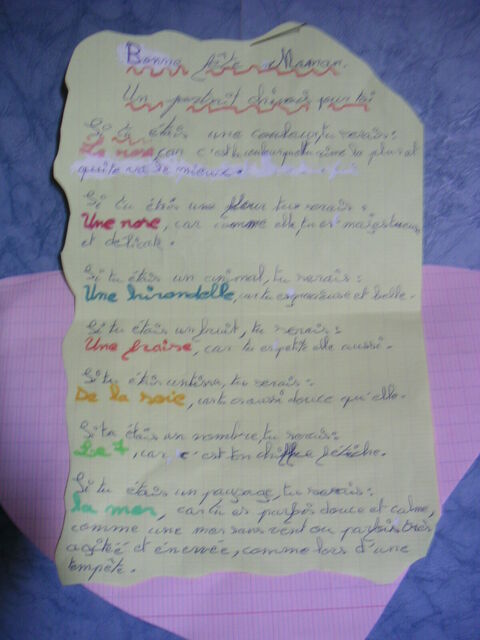 Bonne fête Maman.
Un portrait chinois pour toi
Si tu étais une couleur, tu serais:
Le rose, car c'est la couleur que tu aime la plus et
qui te va le mieux.
Si tu étais une fleur tu serais:
Une rose, car comme elle, tu es majestueuse
et délicate.
Si tu étais un animal, tu serais:
Une hirondelle, car tu es gracieuse et belle.
Si tu étais un fruit, tu serais:
Une fraise, car tu es petite elle aussi.
Si tu étais un tissu, tu serais:
De la soie, car tu es aussi douce qu'elle.
Si tu étais un nombre, tu serais:
Le 7, car c'est ton chiffre fétiche.
Si tu étais un paysage, tu serais:
la mer, car tu es parfois douce et calme,
comme une mer sans vent ou parfois très
agitée et énervée, comme lors d'une
tempête.